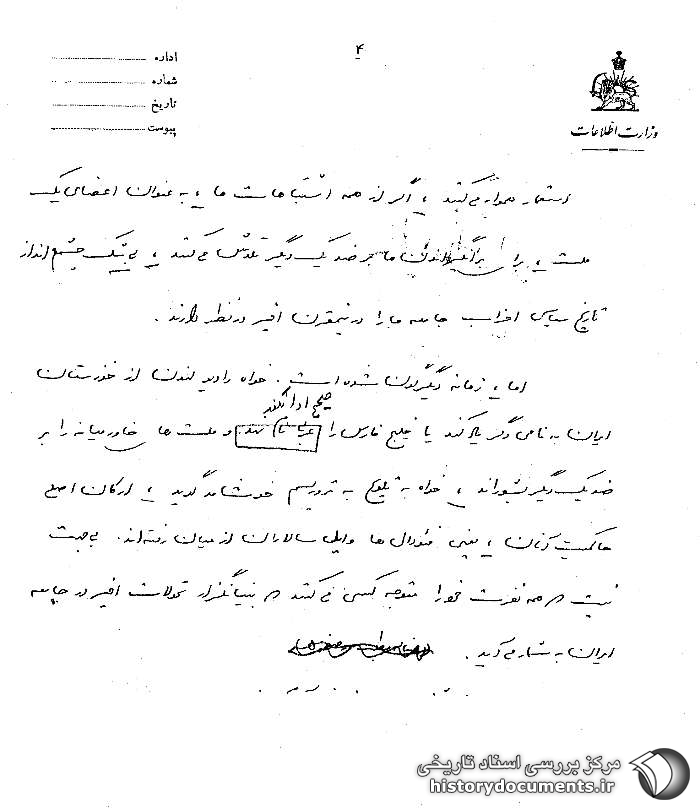 ۴
اداره
شماره
تاریخ
پیوست
وزارت اطلاعات
استعمار هموار می‌کنید، اگر از همه اشتباهات ما، به عنوان اعضای یک
ملت، برای برانگیختن ما بر ضد یک دیگر تلاش می‌کنند، بی‌شک چشم انداز
تاریخ سیاسی احزاب جامعه ما را در نیمقرن اخیر در نظر دارند.
اما، زمانه دیگرگون شده است. خواه رادیو لندن از خوزستان
صحیح ادا نکند
ایران به نامی دگر یاد کند یا خلیج فارس را و ملت های خاورمیانه را بر
ضد یک دیگر بشوراند، خواه به تلویح به تروریسم خوشامد گوید، ارکان اصلی
حاکمیت آنان، یعنی فئودال ها و ایلی سالاران از میان رفته‌اند. بی‌جهت
نیست که همه نفرت خود را متوجه کسی می‌کنند که بنیانگزار تحولات اخیر در جامعه
ایران به شمار می‌آید.
مرکز بررسی اسناد تاریخی
historydocuments.ir